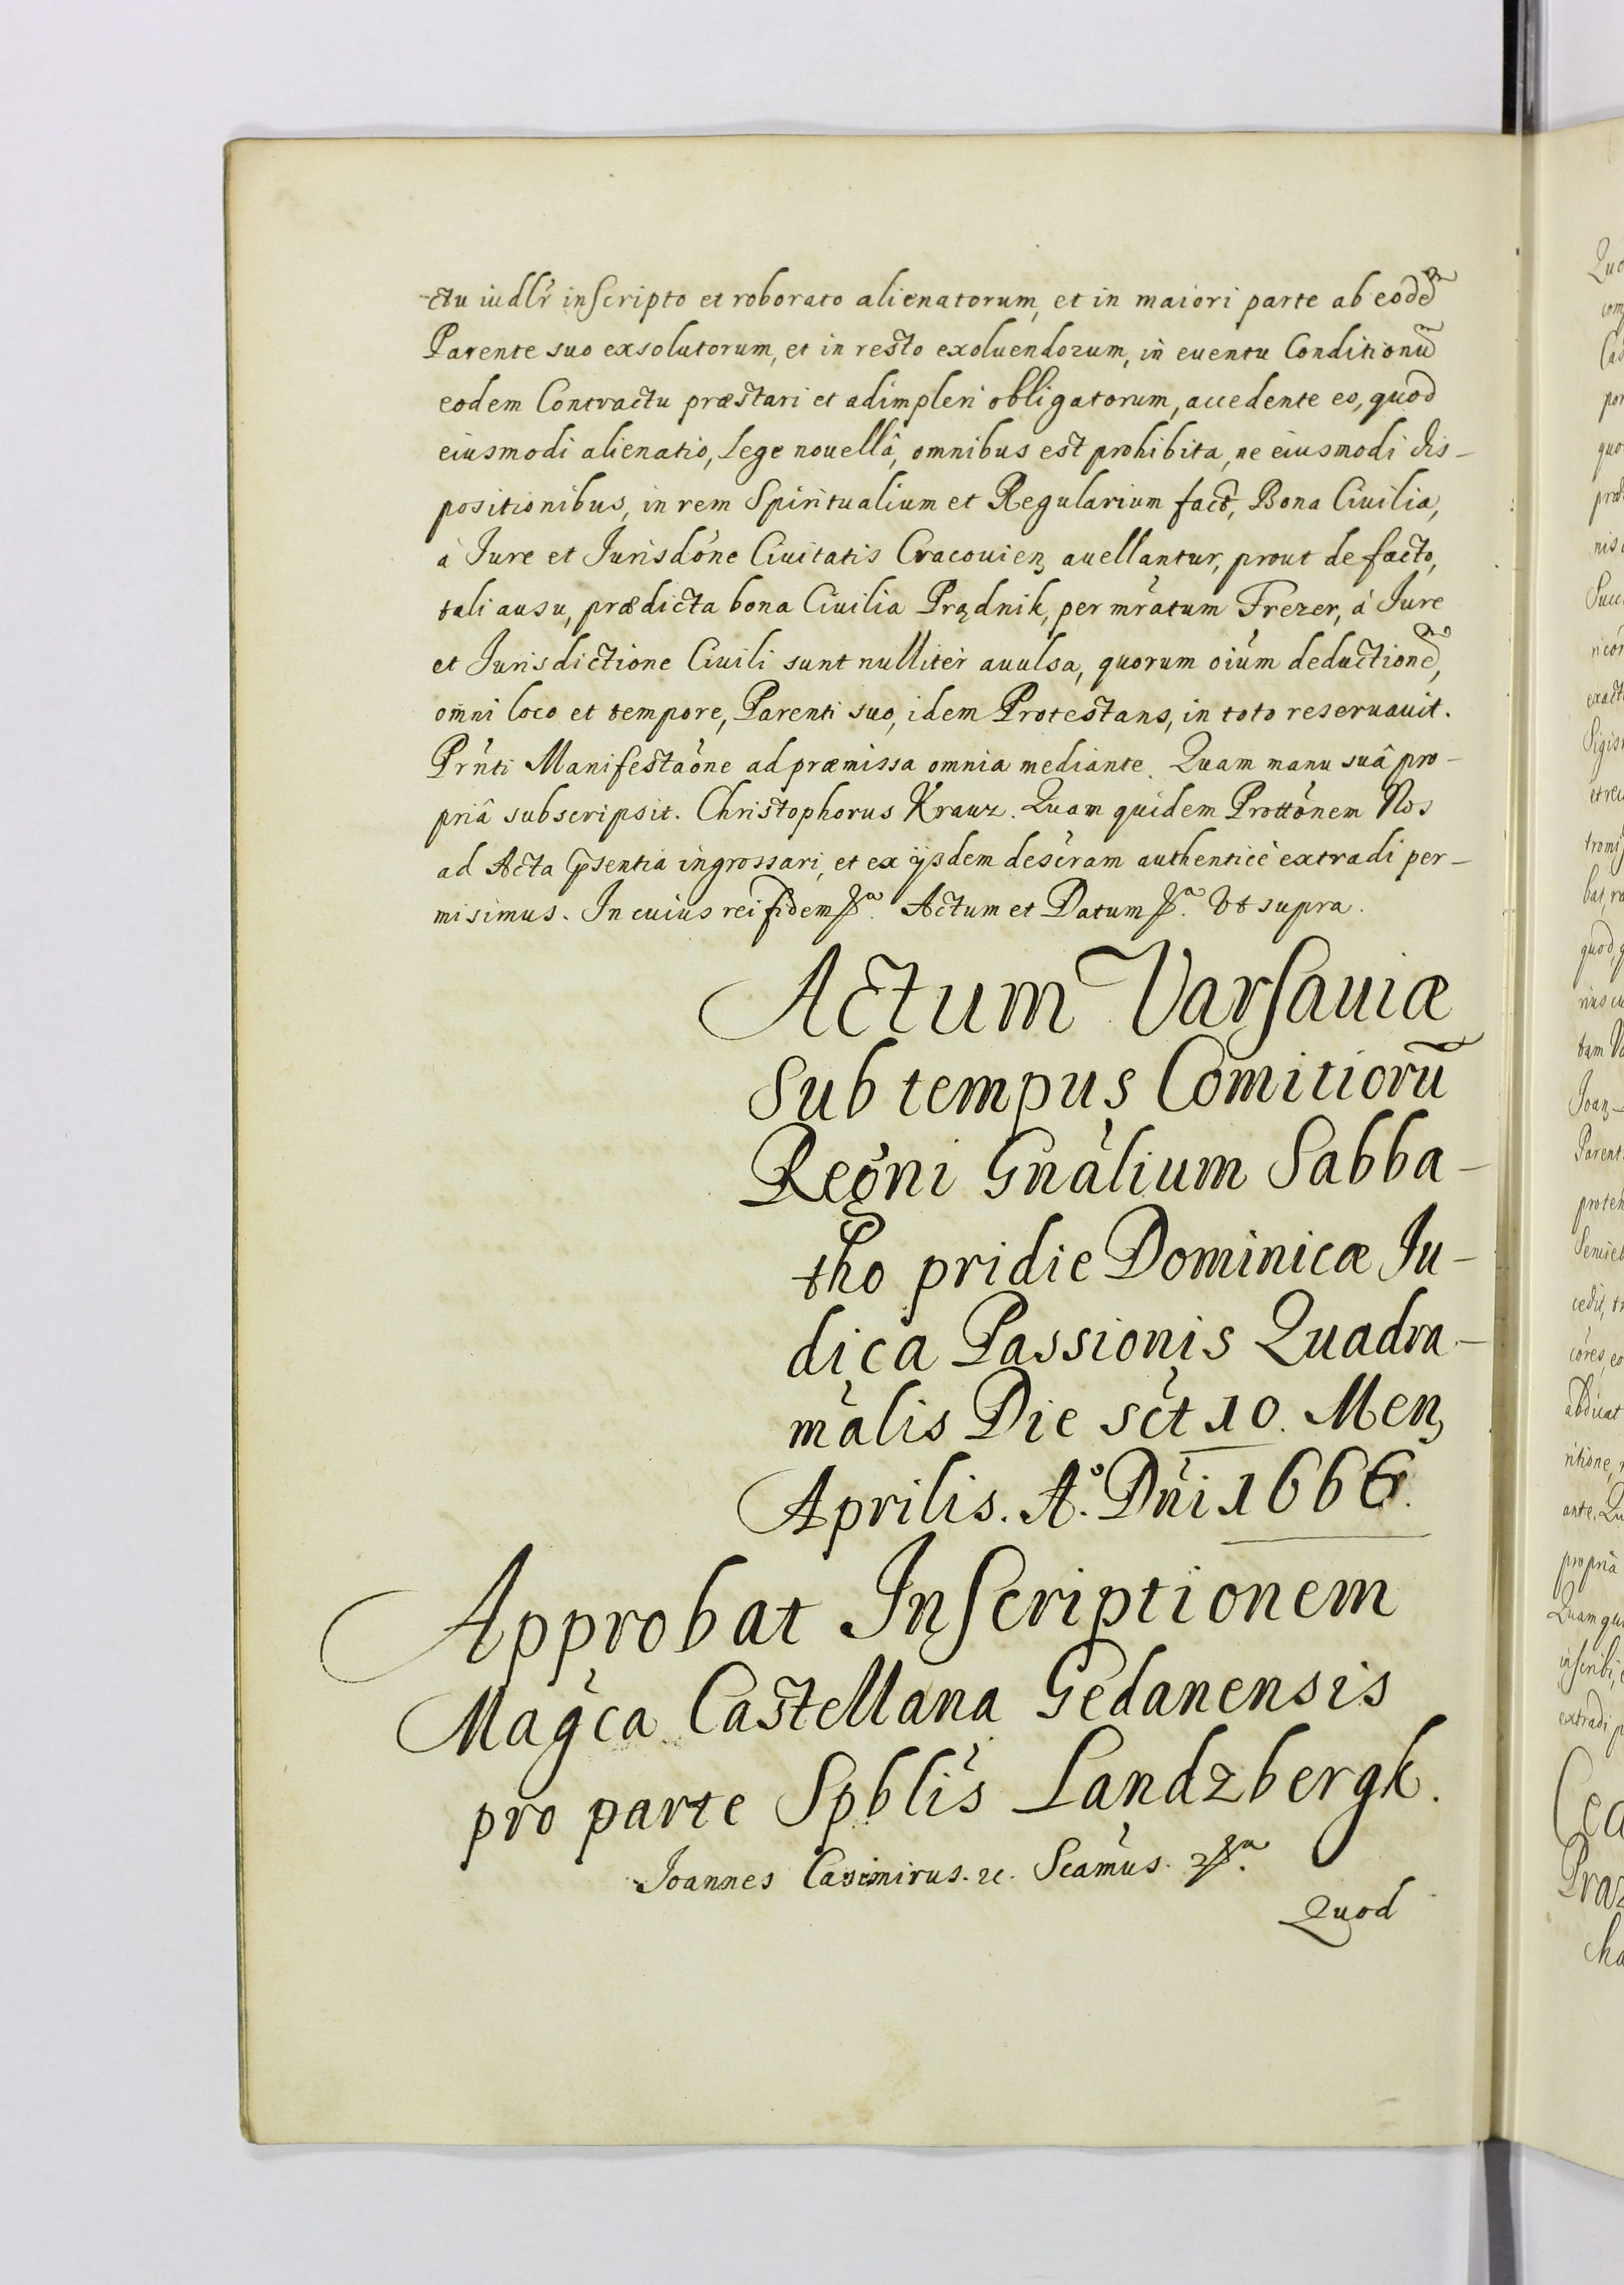 -ctu iudlr̀ inscripto et roborato alienatorum, et in maiori parte ab eodẽ
Parente suo exsolutorum, et in resto exoluendorum, in euentu Conditionũ
eodem Contractu præstari et adimpleri obligatorum, accedente eo, quod
eiusmodi alienatio, Lege nouellâ, omnibus est prohibita, ne eiusmodi dis-
positionibus, in rem Spiritualium et Regularium fact, Bona Ciuilia,
à Jure et Jurisdòne Ciuitatis Cracouien, auellantur, prout de facto,
tali ausu, prædicta bona Ciuilia Prądnik, per mràtum Frezer, à Jure
et Jurisdictione Ciuili sunt nulliter auulsa, quorum oiùm deductionẽ,
omni loco et tempore, Parenti suo, idem Protestans, in toto reseruauit.
Prǹti Manifestaòne ad præmissa omnia mediante. Quam manu suâ pro-
priâ subscripsit. Christophorus Krauz. Quam quidem Prottònem Nos
ad Acta pṡentia ingrossari, et ex ijsdem desc̀ram authenticè extradi per-
misimus. In cuius rei fidem &a. Actum et Datum &a. Vt supra.
Actum Varsauiæ
Sub tempus Comitiorũ
Regni Gnàlium Sabba-
tho pridie Dominicæ Ju-
dica Passionis Quadra-
màlis Die sc̀t 10. Men,
Aprilis. Aº. Dnì 1666.
Approbat Inscriptionem
Magc̀a Castellana Gedanensis
pro parte Spblis̀ Landzbergk.
Joannes Casimirus. &c. Scamùs. &a.
Quod